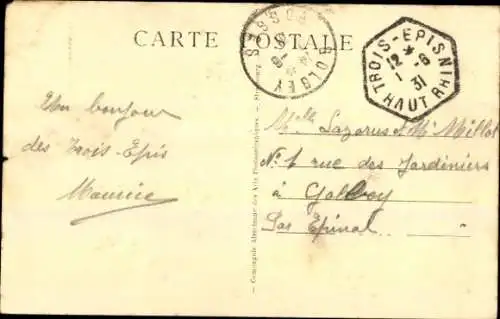 CARTE POSTALE
GOLBEY
VOSGES
TROIS-EPIS
12 * -6
1 31
HAUT RHIN
Un bonjour
des Trois-Epis
Maurice
Melle Lazarus & Mr Millot
No 1 rue des Jardiniers
à Golbey
Par Epinal
Compagnie Alsacienne des Arts Photomécaniques, Strasbourg